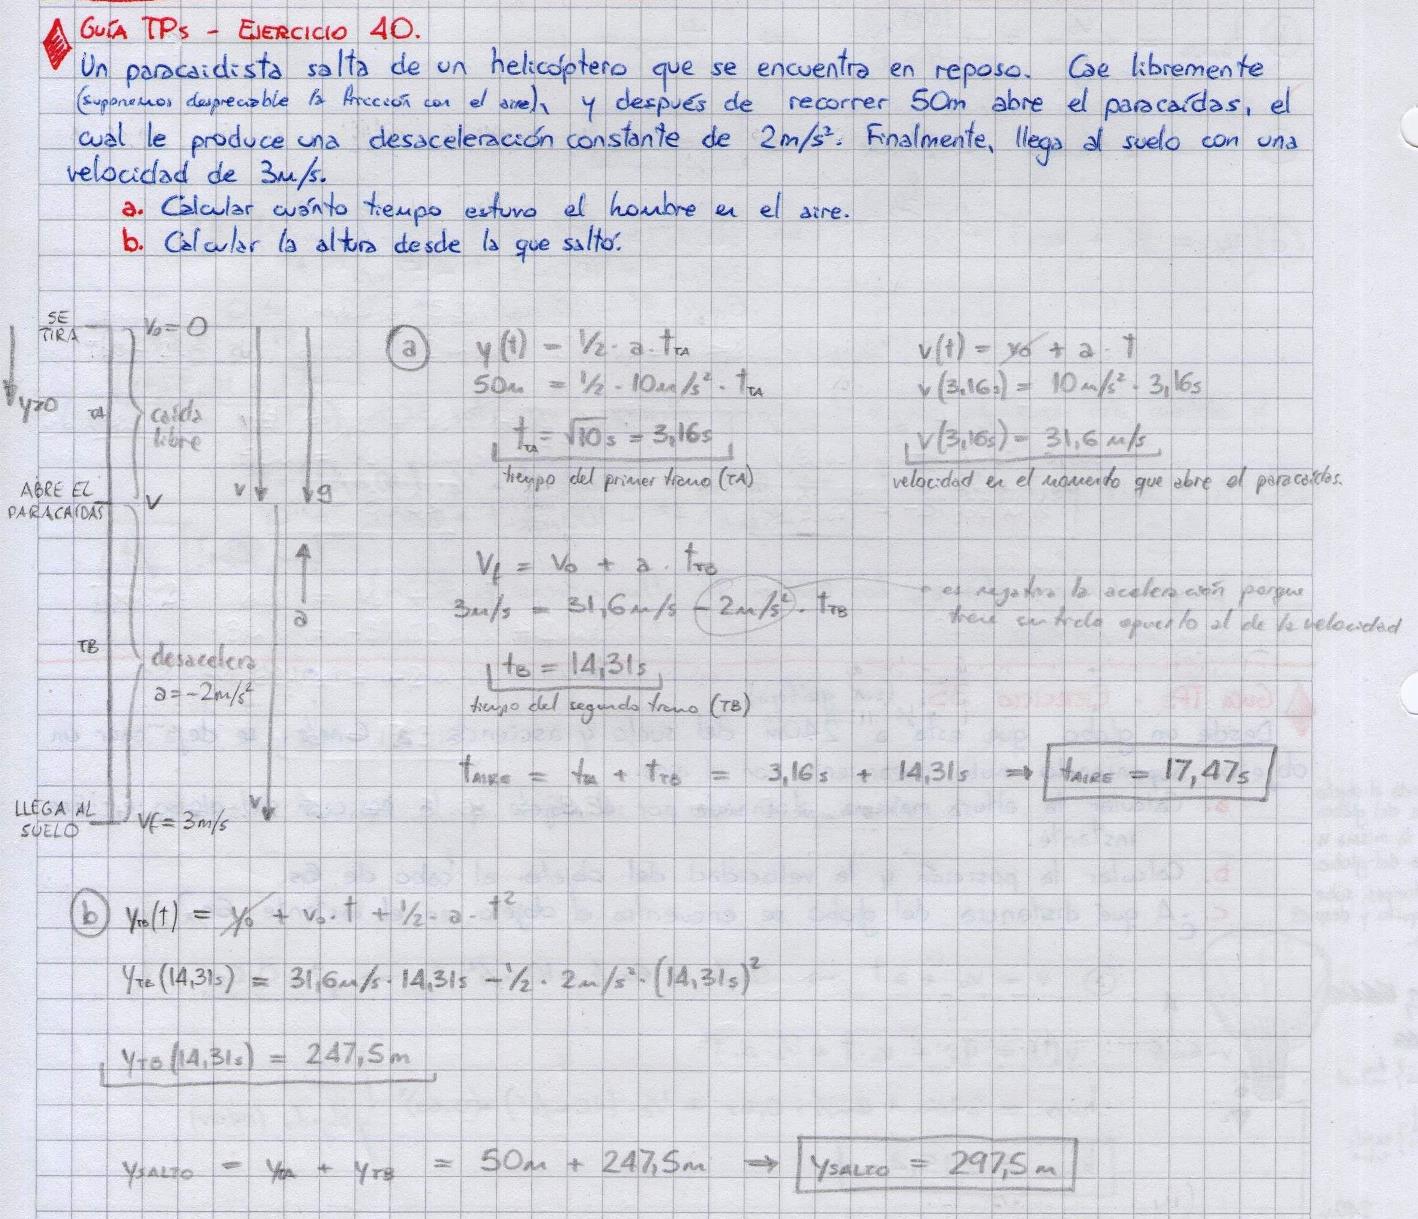 GUÍA TPs - EJERCICIO 40.
Un paracaidista salta de un helicóptero que se encuentra en reposo. Cae libremente
(suponemos despreciable la fricción con el aire), y después de recorrer 50m abre el paracaídas, el
cual le produce una desaceleración constante de 2m/s². Finalmente, llega al suelo con una
velocidad de 3m/s.
a. Calcular cuánto tiempo estuvo el hombre en el aire.
b. Calcular la altura desde la que saltó.
SE TIRA
V₀ = 0
y>0
TA
caída
libre
ABRE EL
PARACAÍDAS
V
V
g
a
TB
desacelera
a = -2m/s²
V
LLEGA AL
SUELO
Vf = 3m/s
a
y(t) = 1/2 · a · tTA
50m = 1/2 · 10m/s² · tTA
tTA = √10 s = 3,16s
tiempo del primer tramo (TA)
v(t) = v₀ + a · t
v(3,16s) = 10m/s² · 3,16s
v(3,16s) = 31,6 m/s
velocidad en el momento que abre el paracaídas.
Vf = V₀ + a · tTB
3m/s = 31,6m/s - 2m/s² · tTB
es negativa la aceleración porque
tiene sentido opuesto al de la velocidad
tB = 14,31s
tiempo del segundo tramo (TB)
tAIRE = tTA + tTB = 3,16s + 14,31s ⇒ tAIRE = 17,47s
b
yTB(t) = y₀ + v₀ · t + 1/2 · a · t²
yTB(14,31s) = 31,6m/s · 14,31s - 1/2 · 2m/s² · (14,31s)²
yTB(14,31s) = 247,5m
ySALTO = yTA + yTB = 50m + 247,5m ⇒ ySALTO = 297,5m